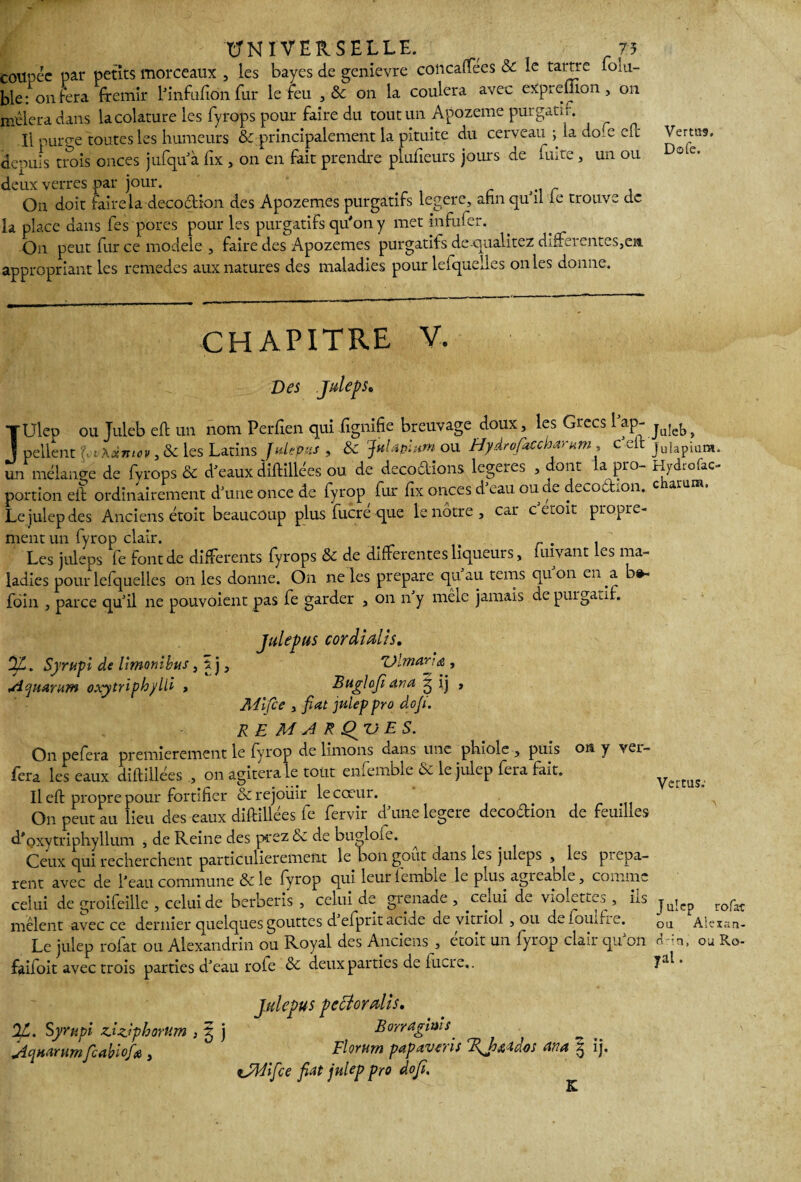 UNIVERSELLE. 73
coupée par petits morceaux , les bayes de genievre concaſſées & le tartre ſolu-
ble: on fera fremir l'infuſion ſur le feu , & on la coulera avec expreſſion , on
mêlera dans la colature les ſyrops pour faire du tout un Apozeme purgatif.
Il purge toutes les humeurs & principalement la pituite du cerveau ; la doſe eſt
Vertus.
depuis trois onces juſqu'à ſix , on en fait prendre pluſieurs jours de ſuite , un ou
Doſe.
deux verres par jour.
On doit faire la decoction des Apozemes purgatifs legere, afin qu'il ſe trouve de
la place dans ſes pores pour les purgatifs qu'on y met infuſer.
On peut ſur ce modele , faire des Apozemes purgatifs de qualitez differentes, en
appropriant les remedes aux natures des maladies pour leſquelles on les donne.
CHAPITRE V.
Des Juleps.
JUlep ou Juleb eſt un nom Perſien qui ſignifie breuvage doux, les Grecs l'ap-
Juleb,
pellent , & les Latins Julepus , & Julapium ou Hydroſaccharum , c'eſt
Julapium.
un mélange de ſyrops & d'eaux diſtillées ou de decoctions legeres , dont la pro-
Hydroſac-
portion eſt ordinairement d'une once de ſyrop ſur ſix onces d'eau ou de decoction.
charum.
Le julep des Anciens étoit beaucoup plus ſucré que le nôtre , car c'étoit propre-
ment un ſyrop clair.
Les juleps ſe font de differents ſyrops & de differentes liqueurs, ſuivant les ma-
ladies pour leſquelles on les donne. On ne les prepare qu'au tems qu'on en a be-
ſoin , parce qu'il ne pouvoient pas ſe garder , on n'y mêle jamais de purgatif.
Julepus cordialis.
℞. Syrupi de limonibus, ℥ j , Ulmariæ ,
Aquarum oxytriphylli , Bugloſi ana ℥ ij ,
Miſce , fiat julep pro doſi.
REMARQVES.
On peſera premierement le ſyrop de limons dans une phiole , puis on y ver-
ſera les eaux diſtillées , on agitera le tout enſemble & le julep ſera fait.
Il eſt propre pour fortifier & rejoüir le cœur.
Vertus.
On peut au lieu des eaux diſtillées ſe ſervir d'une legere decoction de feuilles
d'oxytriphyllum , de Reine des prez & de bugloſe.
Ceux qui recherchent particulierement le bon goût dans les juleps , les prepa-
rent avec de l'eau commune & le ſyrop qui leur ſemble le plus agreable, comme
celui de groiſeille , celui de berberis , celui de grenade , celui de violettes , ils
mêlent avec ce dernier quelques gouttes d'eſprit acide de vitriol , ou de ſoulfre.
Julep roſat
ou Alexan-
Le julep roſat ou Alexandrin ou Royal des Anciens , étoit un ſyrop clair qu'on
drin, ou Ro-
faiſoit avec trois parties d'eau roſe & deux parties de ſucre..
yal.
Julepus pectoralis.
℞. Syrupi ziziphorum , ℥ j Borraginis
Aquarum ſcabioſæ , Florum papaveris Rhæados ana ℥ ij.
Miſce fiat julep pro doſi.
K